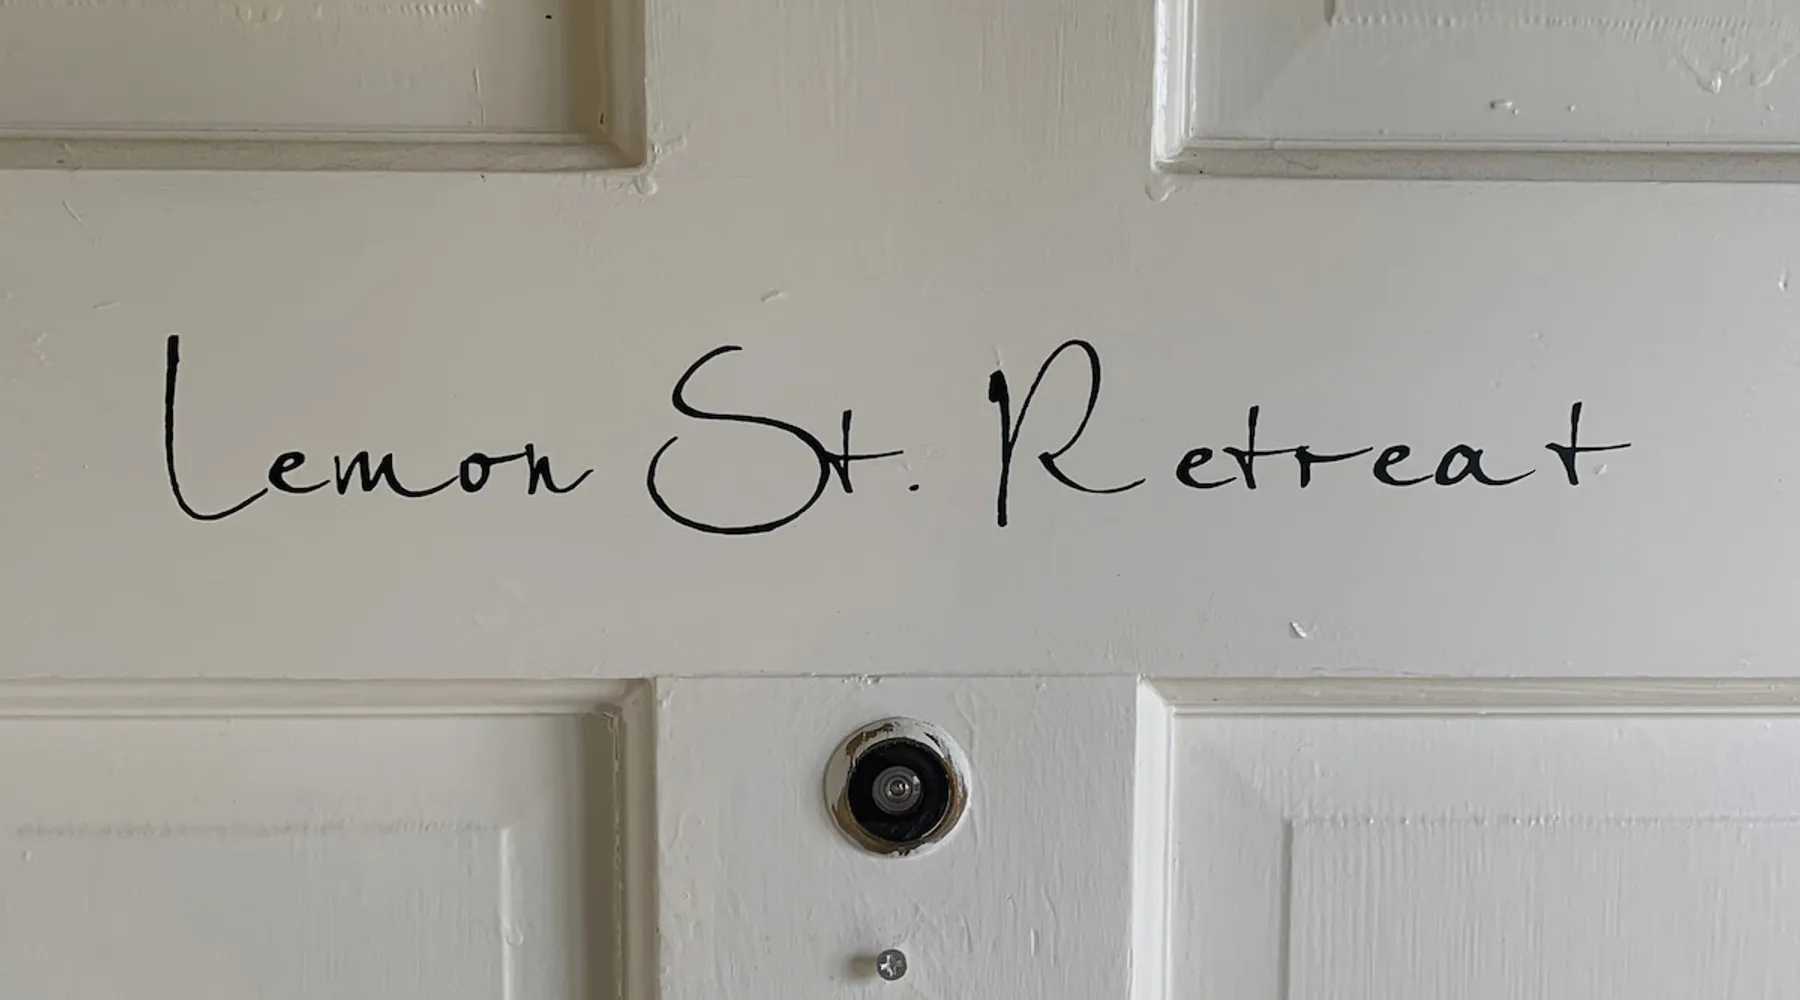 Lemon St. Retreat